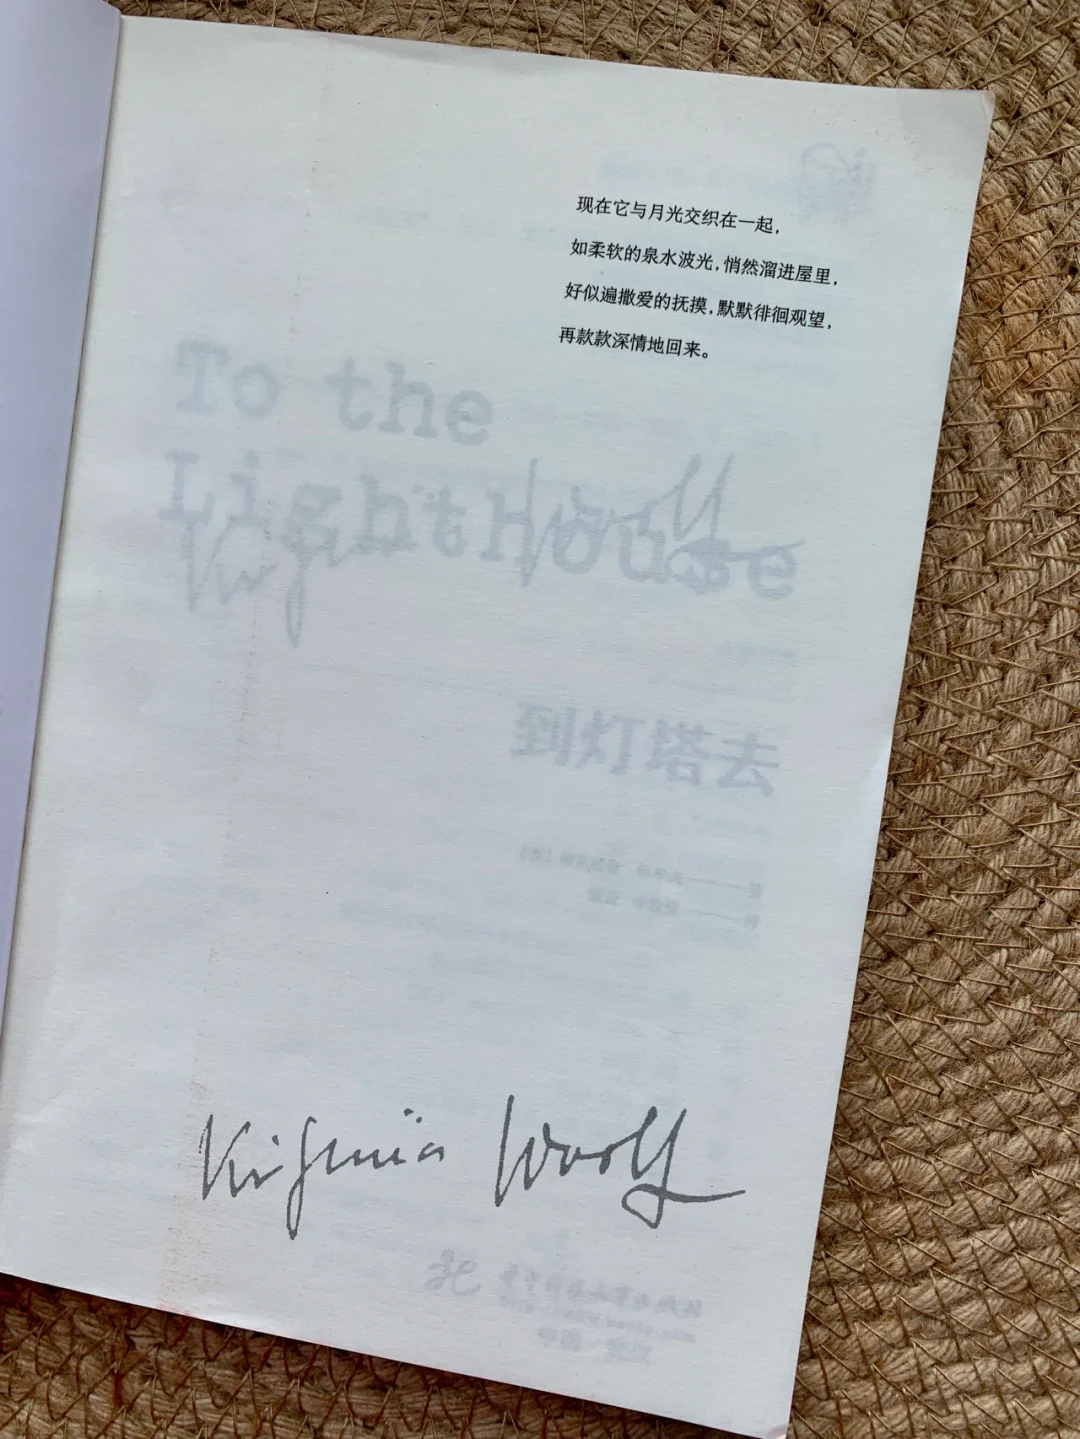 现在它与月光交织在一起，
如柔软的泉水波光，悄然溜进屋里，
好似遍撒爱的抚摸，默默徘徊观望，
再款款深情地回来。
To the
Lighthouse
到灯塔去
Virginia Woolf